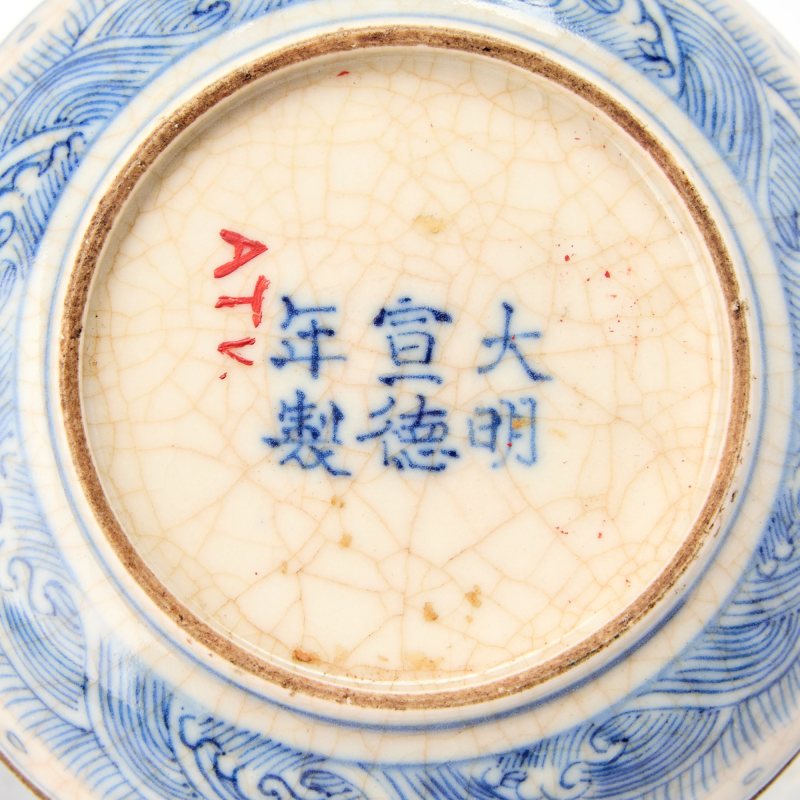 大明
宣德
年製
ATV.